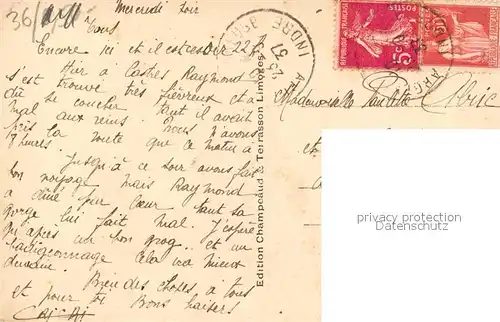 36/
Mercredi soir
à tous
Encore ici et il est ce soir 22 h
Hier à Castres Raymond
s'est trouvé très fiévreux et a
dû se coucher tant il avait
mal aux reins. Nous n'avons
pris la route que ce matin à
7 heures.
Jusqu'à ce soir avons fait
bon voyage mais Raymond
a dîné par cœur tant sa
gorge lui fait mal. J'espère
qu'après un bon grog et un
badigeonnage cela ira mieux
demain.
Bien des choses à tous
et pour toi Bons baisers
Edition Champeaud & Terrasson Limoges
INDRE
37
REPUBLIQUE FRANÇAISE
15c
Mademoiselle Paulette
privacy protection
Sammler.com